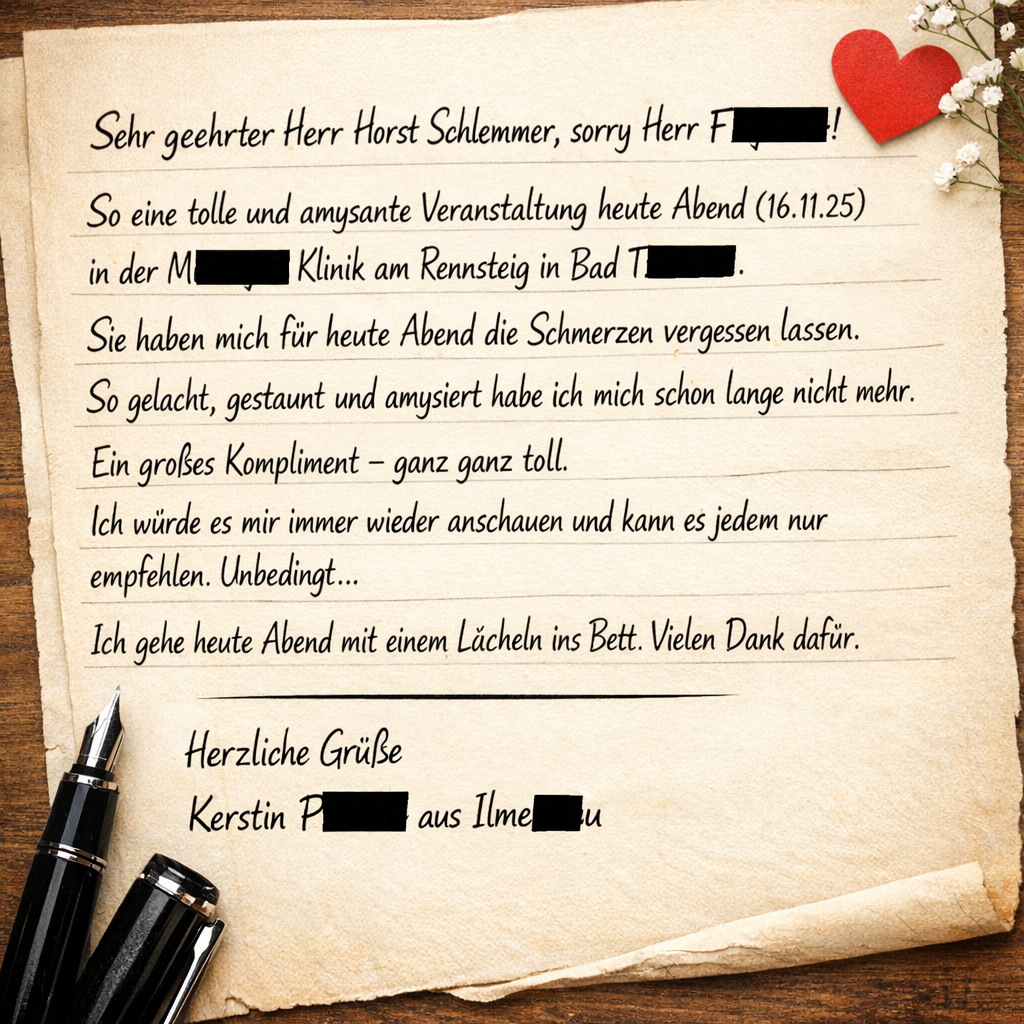 Sehr geehrter Herr Horst Schlemmer, sorry Herr F!
So eine tolle und amysante Veranstaltung heute Abend (16.11.25)
in der M Klinik am Rennsteig in Bad T.
Sie haben mich für heute Abend die Schmerzen vergessen lassen.
So gelacht, gestaunt und amysiert habe ich mich schon lange nicht mehr.
Ein großes Kompliment – ganz ganz toll.
Ich würde es mir immer wieder anschauen und kann es jedem nur
empfehlen. Unbedingt...
Ich gehe heute Abend mit einem Lächeln ins Bett. Vielen Dank dafür.
Herzliche Grüße
Kerstin P aus Ilme u